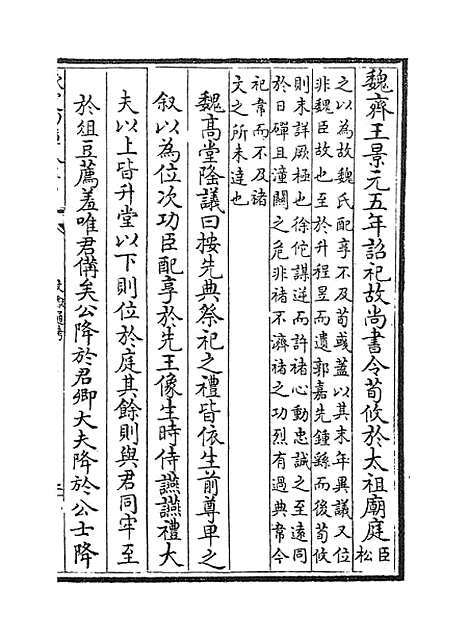 魏齊王景元五年詔祀故尚書令荀攸於太祖廟庭臣松
之以為故魏氏配享不及荀彧葢以其末年異議又位
非魏臣故也至於升程昱而遺郭嘉先鍾繇而後荀攸
則未詳厥極也徐佗謀逆而許褚心動忠誠之至遠同
於日磾且潼關之危非褚不濟褚之功烈有過典韋今
祀韋而不及褚
文之所未達也
魏髙堂隆議曰按先典祭祀之禮皆依生前尊卑之
叙以為位次功臣配享於先王像生時侍讌讌禮大
夫以上皆升堂以下則位於庭其餘則與君同牢至
於俎豆薦羞唯君備矣公降於君卿大夫降於公士降